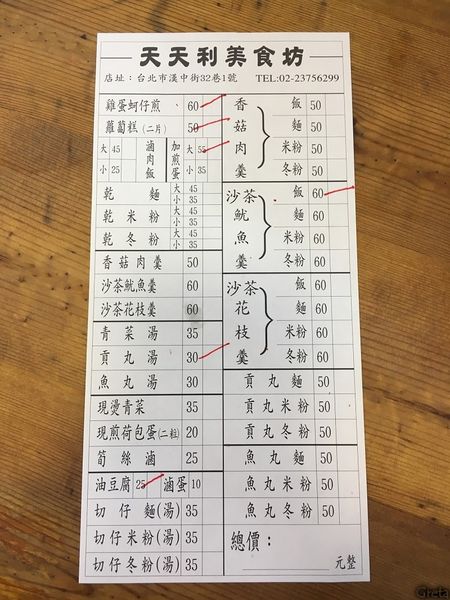 天天利美食坊
店址：台北市漢中街32巷1號 TEL:02-23756299
雞蛋蚵仔煎 60
蘿蔔糕(二片) 50
滷肉飯 大 45 小 25
加煎蛋 大 55 小 35
乾麵 大 45 小 35
乾米粉 大 45 小 35
乾冬粉 大 45 小 35
香菇肉羹 50
沙茶魷魚羹 60
沙茶花枝羹 60
青菜湯 35
貢丸湯 30
魚丸湯 30
現燙青菜 35
現煎荷包蛋(二粒) 20
筍絲滷 25
油豆腐 25 滷蛋 10
切仔麵(湯) 35
切仔米粉(湯) 35
切仔冬粉(湯) 35
香菇肉羹
飯 50
麵 50
米粉 50
冬粉 50
沙茶魷魚羹
飯 60
麵 60
米粉 60
冬粉 60
沙茶花枝羹
飯 60
麵 60
米粉 60
冬粉 60
貢丸麵 50
貢丸米粉 50
貢丸冬粉 50
魚丸麵 50
魚丸米粉 50
魚丸冬粉 50
總價：
元整
Greta